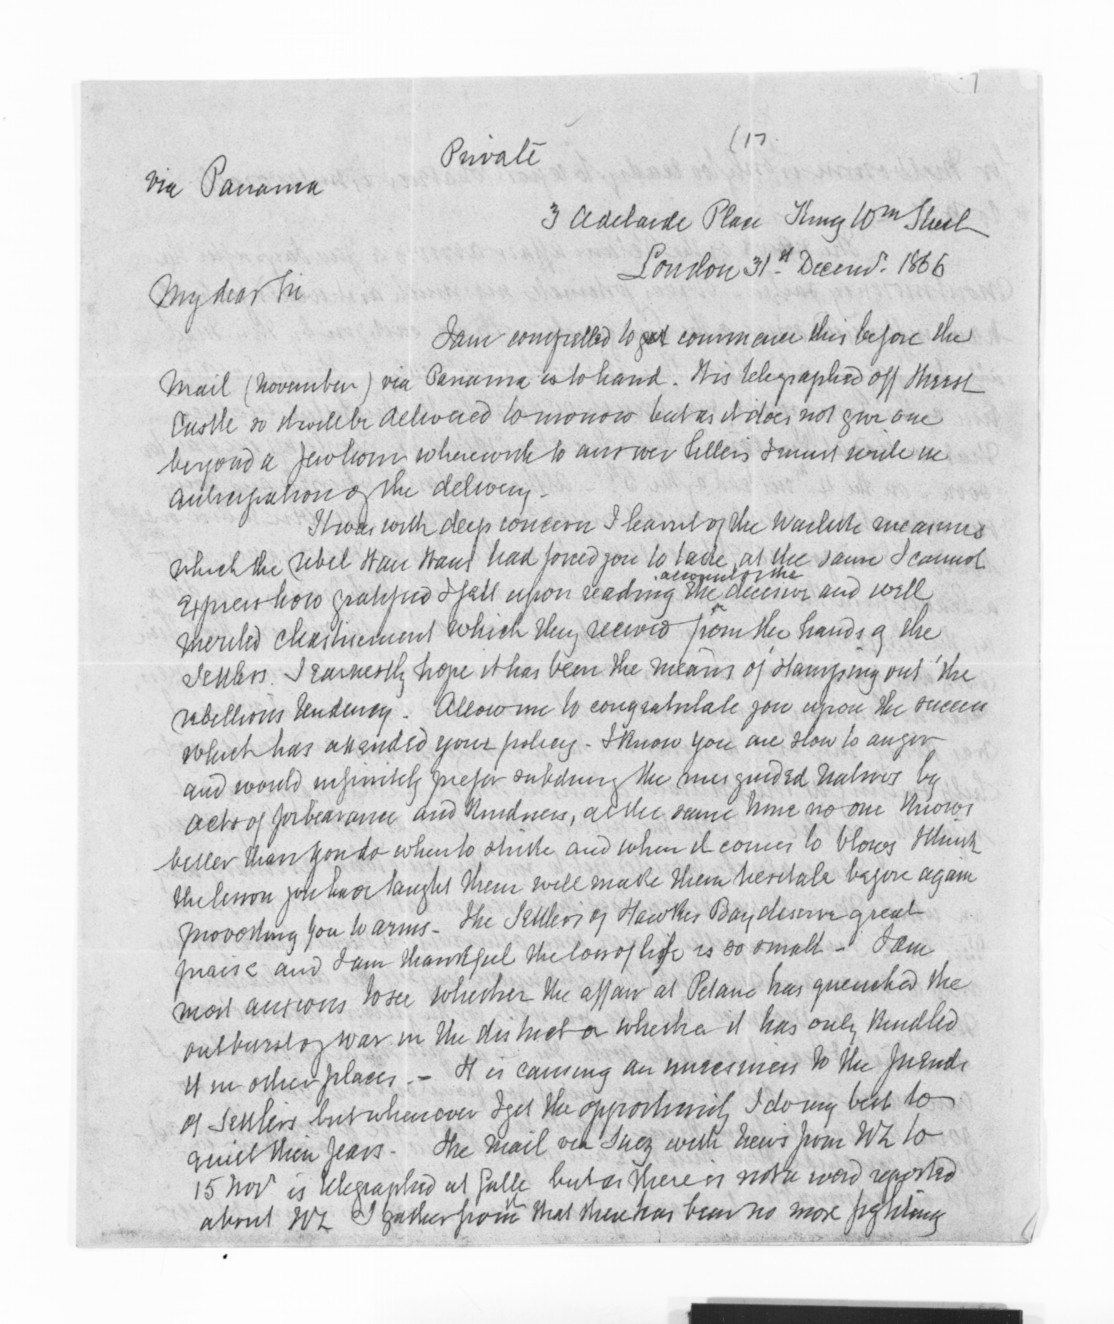 (17
Private
via Panama
3 Adelaide Place King Wm Street
London 31st Decemr. 1866
My dear Sir
I am compelled to commence this before the
Mail (November) via Panama is to hand. It is telegraphed off Hurst
Castle so it will be delivered tomorrow but as it does not give one
beyond a few hours wherewith to answer letters I must write in
anticipation of the delivery -
It was with deep concern I learnt of the warlike measures
which the rebel Hau Haus had forced you to take, at the same I cannot
Express how gratified I felt upon reading the account of the decisive and well
merited chastisement which they received from the hands of the
Settlers. I Earnestly hope it has been the means of 'stamping out' the
rebellious tendency. Allow me to congratulate you upon the success
which has attended your policy - I know you are slow to anger
and would infinitely prefer subduing the misguided natives by
acts of forbearance and kindness, at the same time no one knows
better than you do when to strike and when it comes to blows I think
the lesson you have taught them will make them hesitate before again
provoking you to arms - The Settlers of Hawkes Bay deserve great
praise and I am thankful the loss of life is so small - I am
most anxious to see whether the affair at Petane has quenched the
outburst of war in the district or whether it has only kindled
it in other places. - It is causing an uneasiness to the friends
of Settlers but whenever I get the opportunity I do my best to
quiet their fears - The Mail via Suez with News from NZ to
15 Novr is telegraphed at Galle but as there is not a word reported
about NZ I gather from it that there has been no more fighting